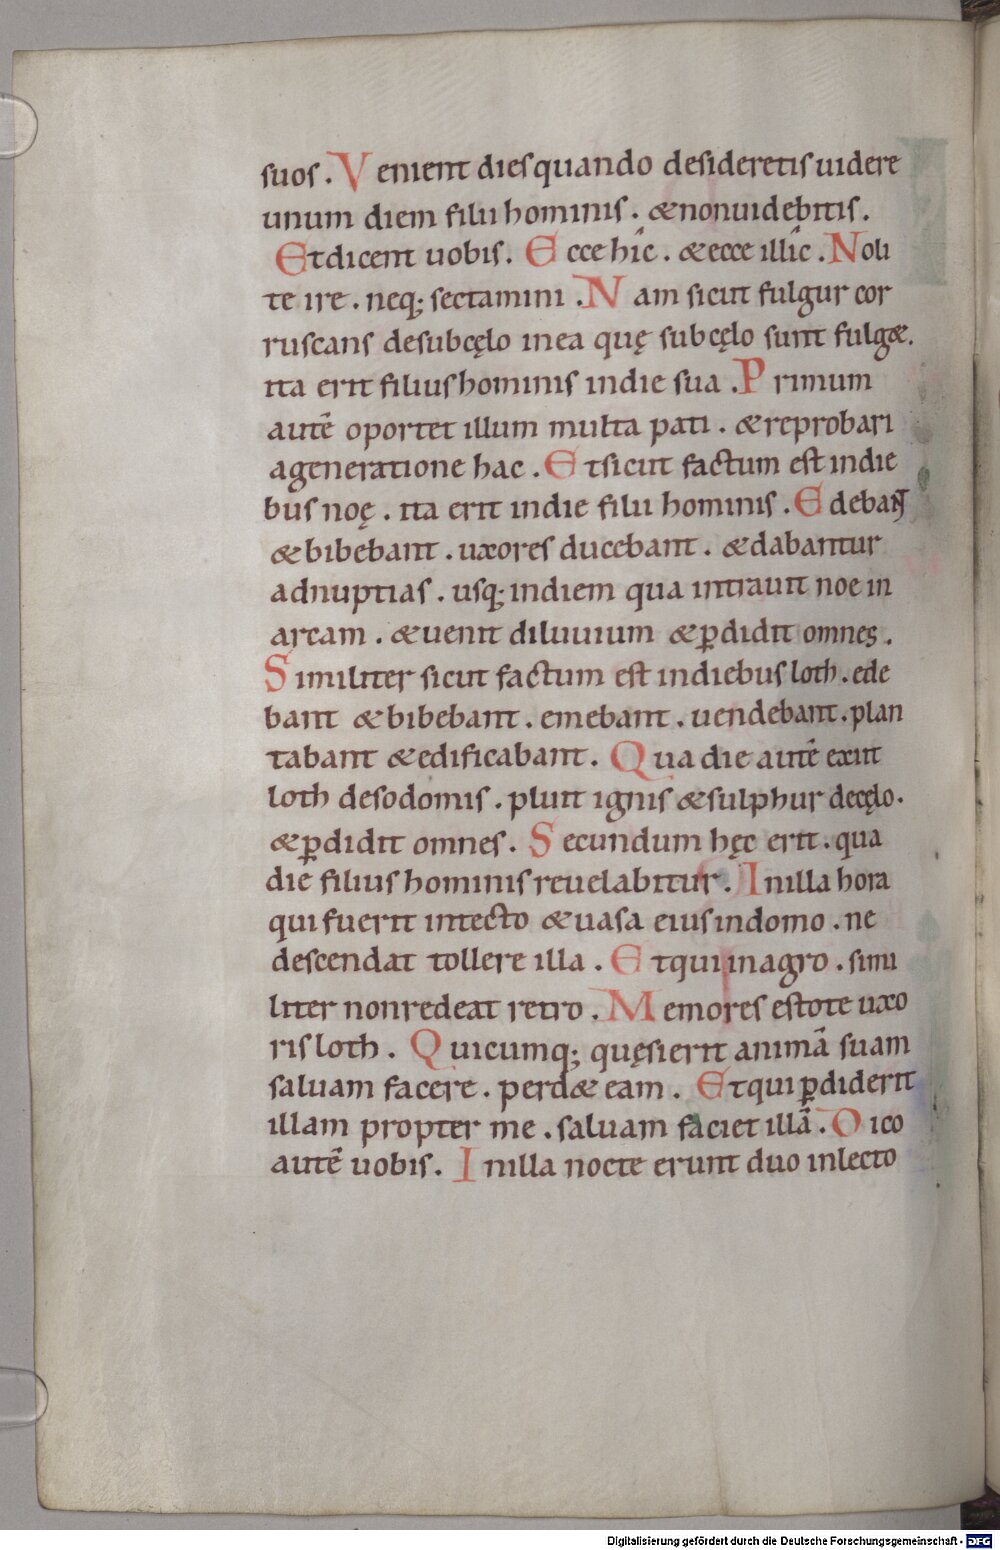 suos. Venient dies quando desideretis uidere
unum diem filii hominis. & non uidebitis.
Et dicent uobis. Ecce hîc. & ecce illîc. Noli
te ire. neq; sectamini. Nam sicut fulgur cor
ruscans de sub cęlo in ea quę sub cęlo sunt fulg&.
ita erit filius hominis in die sua. Primum
autē oportet illum multa pati. & reprobari
a generatione hac. Et sicut factum est in die
bus noę. ita erit in die filii hominis. Edebant
& bibebant. uxores ducebant. & dabantur
ad nuptias. usq; in diem qua intrauit noe in
arcam. & uenit diluuium & ꝑdidit omnes.
Similiter sicut factum est in diebus loth. ede
bant & bibebant. emebant. uendebant. plan
tabant & edificabant. Qua die autē exiit
loth de sodomis. pluit ignis & sulphur de cęlo.
& ꝑdidit omnes. Secundum hęc erit. qua
die filius hominis reuelabitur. In illa hora
qui fuerit in tecto & uasa eius in domo. ne
descendat tollere illa. Et qui in agro. simi
liter non redeat retro. Memores estote uxo
ris loth. Quicumq; quęsierit animā suam
saluam facere. perd& eam. Et qui ꝑdiderit
illam propter me. saluam faciet illā. Dico
autē uobis. In illa nocte erunt duo in lecto
Digitalisierung gefördert durch die Deutsche Forschungsgemeinschaft - DFG